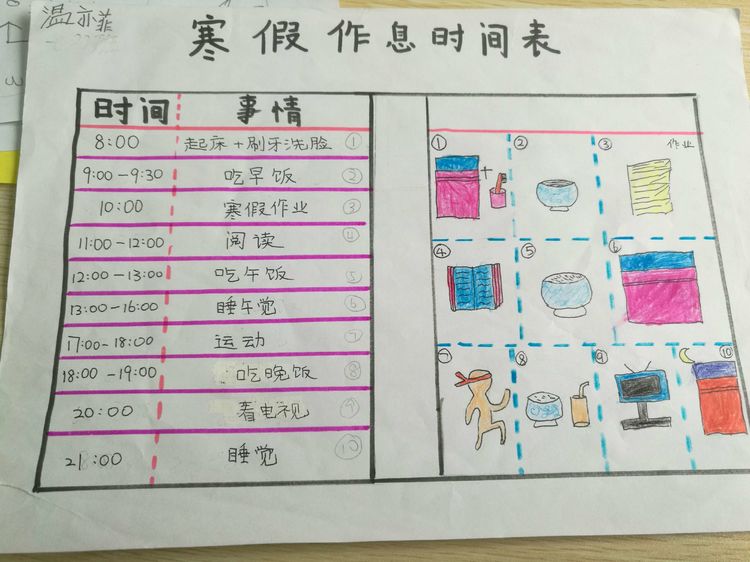 温亦菲
寒假作息时间表
时间 事情
8:00 起床+刷牙洗脸 ①
9:00-9:30 吃早饭 ②
10:00 寒假作业 ③
11:00-12:00 阅读 ④
12:00-13:00 吃午饭 ⑤
13:00-16:00 睡午觉 ⑥
17:00-18:00 运动 ⑦
18:00-19:00 吃晚饭 ⑧
20:00 看电视 ⑨
21:00 睡觉 ⑩
① ② ③ 作业
+
④ ⑤ ⑥
⑦ ⑧ ⑨ ⑩